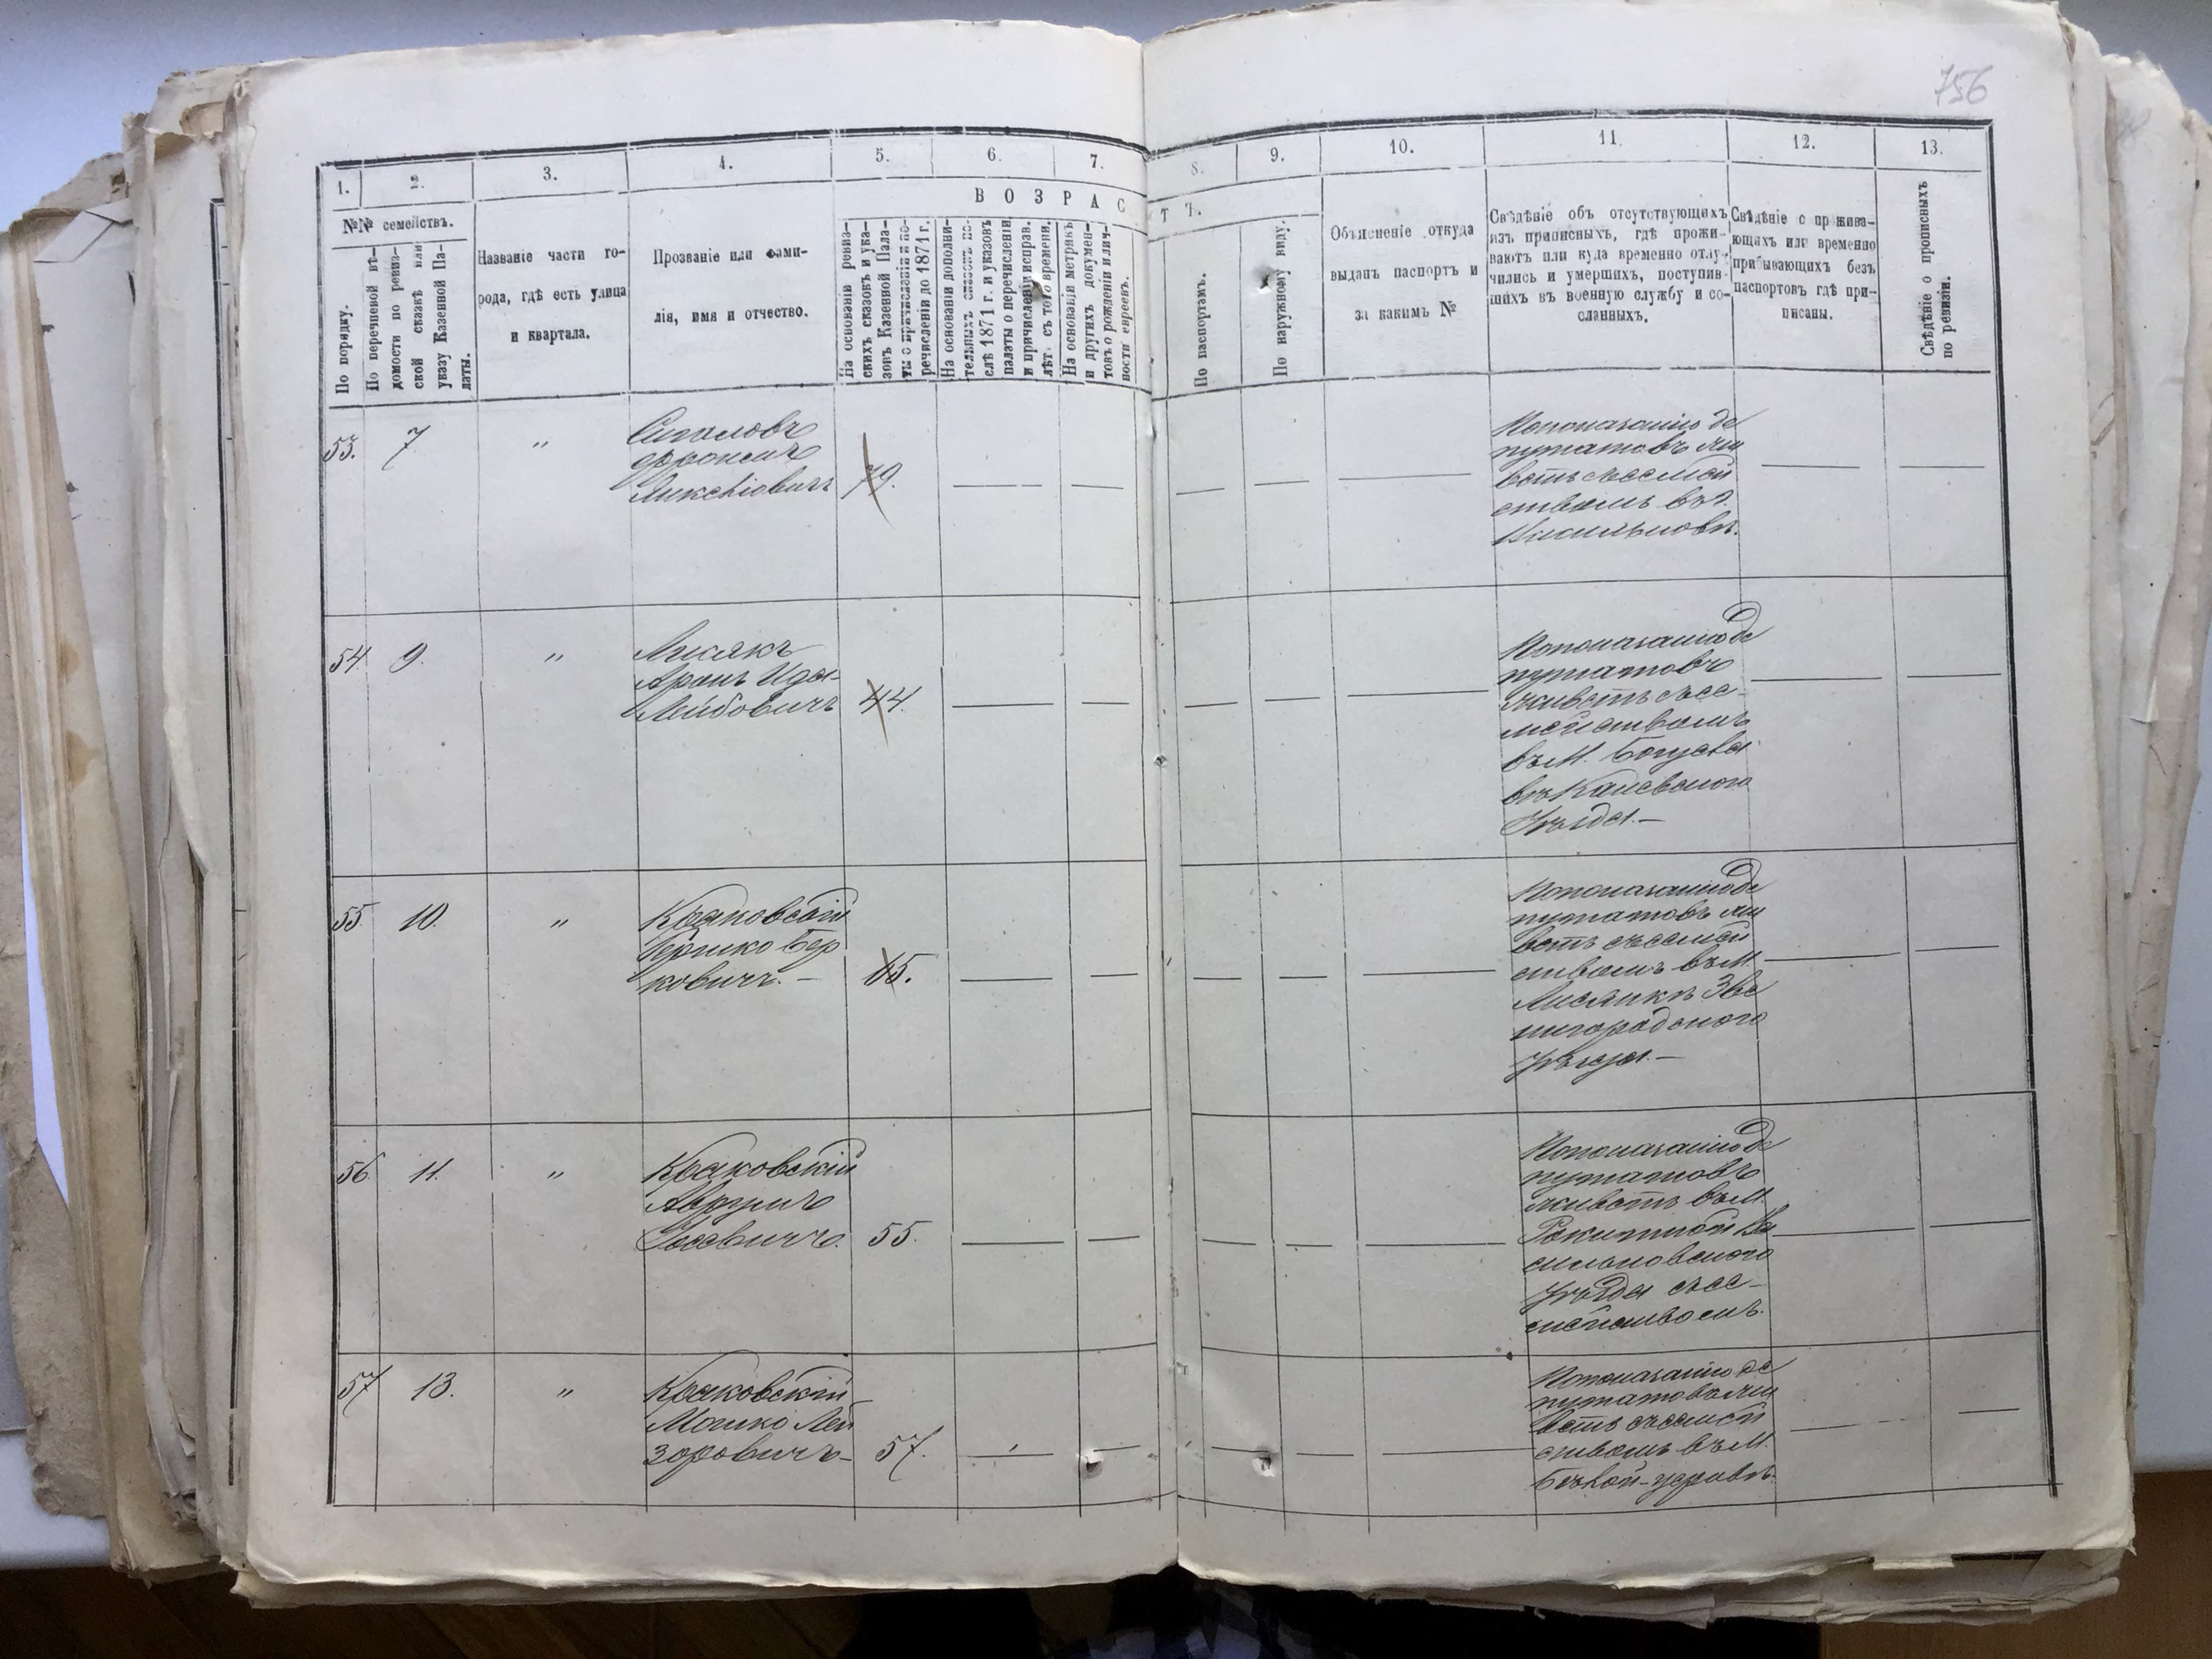 756
1.
2.
3.
4.
5.
6.
7.
8.
9.
10.
11.
12.
13.
№№ семействъ.
По порядку.
По перечневой вѣ-
домости по ревиз-
ской сказкѣ или
указу Казенной Па-
латы.
Названіе части го-
рода, гдѣ есть улица
и квартала.
Прозваніе или фами-
лія, имя и отчество.
ВОЗРАС
ТЪ.
На основаніи ревиз-
скихъ сказокъ и ука-
зовъ Казенной Пала-
ты о причисленіи и пе-
речисленіи до 1871 г.
На основаніи дополни-
тельныхъ сказокъ по-
слѣ 1871 г. и указовъ
палаты о перечисленіи
и причисленіи исправ.
лѣтъ съ того времени.
На основаніи метрикъ
и другихъ докумен-
товъ о рожденіи и лич-
ности евреевъ.
По паспортамъ.
По наружному виду.
Объясненіе откуда
выданъ паспортъ и
за какимъ №
Свѣдѣніе объ отсутствующихъ
изъ приписныхъ, гдѣ прожи-
ваютъ или куда временно отлу-
чились и умершихъ, поступив-
шихъ въ военную службу и со-
сланныхъ.
Свѣдѣніе о прожива-
ющихъ или временно
прибывающихъ безъ
паспортовъ гдѣ при-
писаны.
Свѣдѣніе о прописныхъ
по ревизіи.
53. 7 "
79.
По показанію де
путатовъ жи
ветъ съ семей
ствомъ въ г.
Васильковѣ.
54. 9. " Лисякъ
Аронъ Ида-
Лейбовичъ 44.
По показанію де
путатовъ
живетъ съ се-
мействомъ
въ М. Богусла
вѣ Каневского
Уѣзда.—
55. 10. " Краковскій
Гершко Бер
ковичъ.— 15.
По показанію де
путатовъ жи
ветъ съ семей
ствомъ въ М.
Лисянкѣ Зве
нигородского
уѣзда.—
56. 11. " Краковскій
Аврумъ
Іосевичъ. 55.
По показанію де
путатовъ
живетъ въ М.
Рокитной Ва
сильковского
уѣзда съ се-
мействомъ.
57 13. " Краковскій
Мошко Лей
зоровичъ- 57.
По показанію де
путатовъ жи
ветъ съ семей
ствомъ въ М.
Бѣлой-церквѣ.